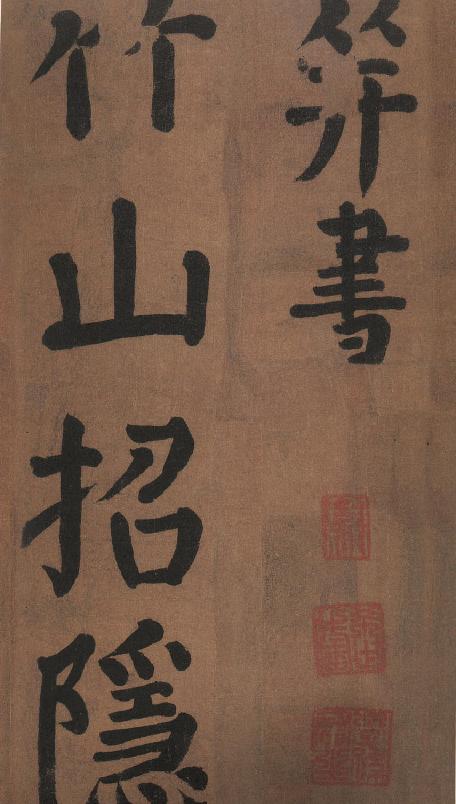 并書
竹山招隱